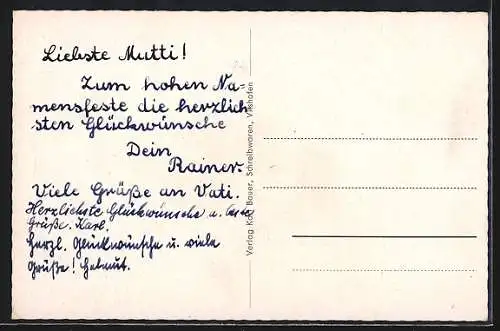 Liebste Mutti!
Zum hohen Na-
mensfeste die herzlich
sten Glückwünsche
Dein
Rainer.
Viele Grüße an Vati.
Herzlichste Glückwünsche u.
Grüße. Karl.
Herzl. Glückwünsche u. viele
Grüße! Helmut.
Verlag Karl Bauer, Schreibwaren, Vilshofen